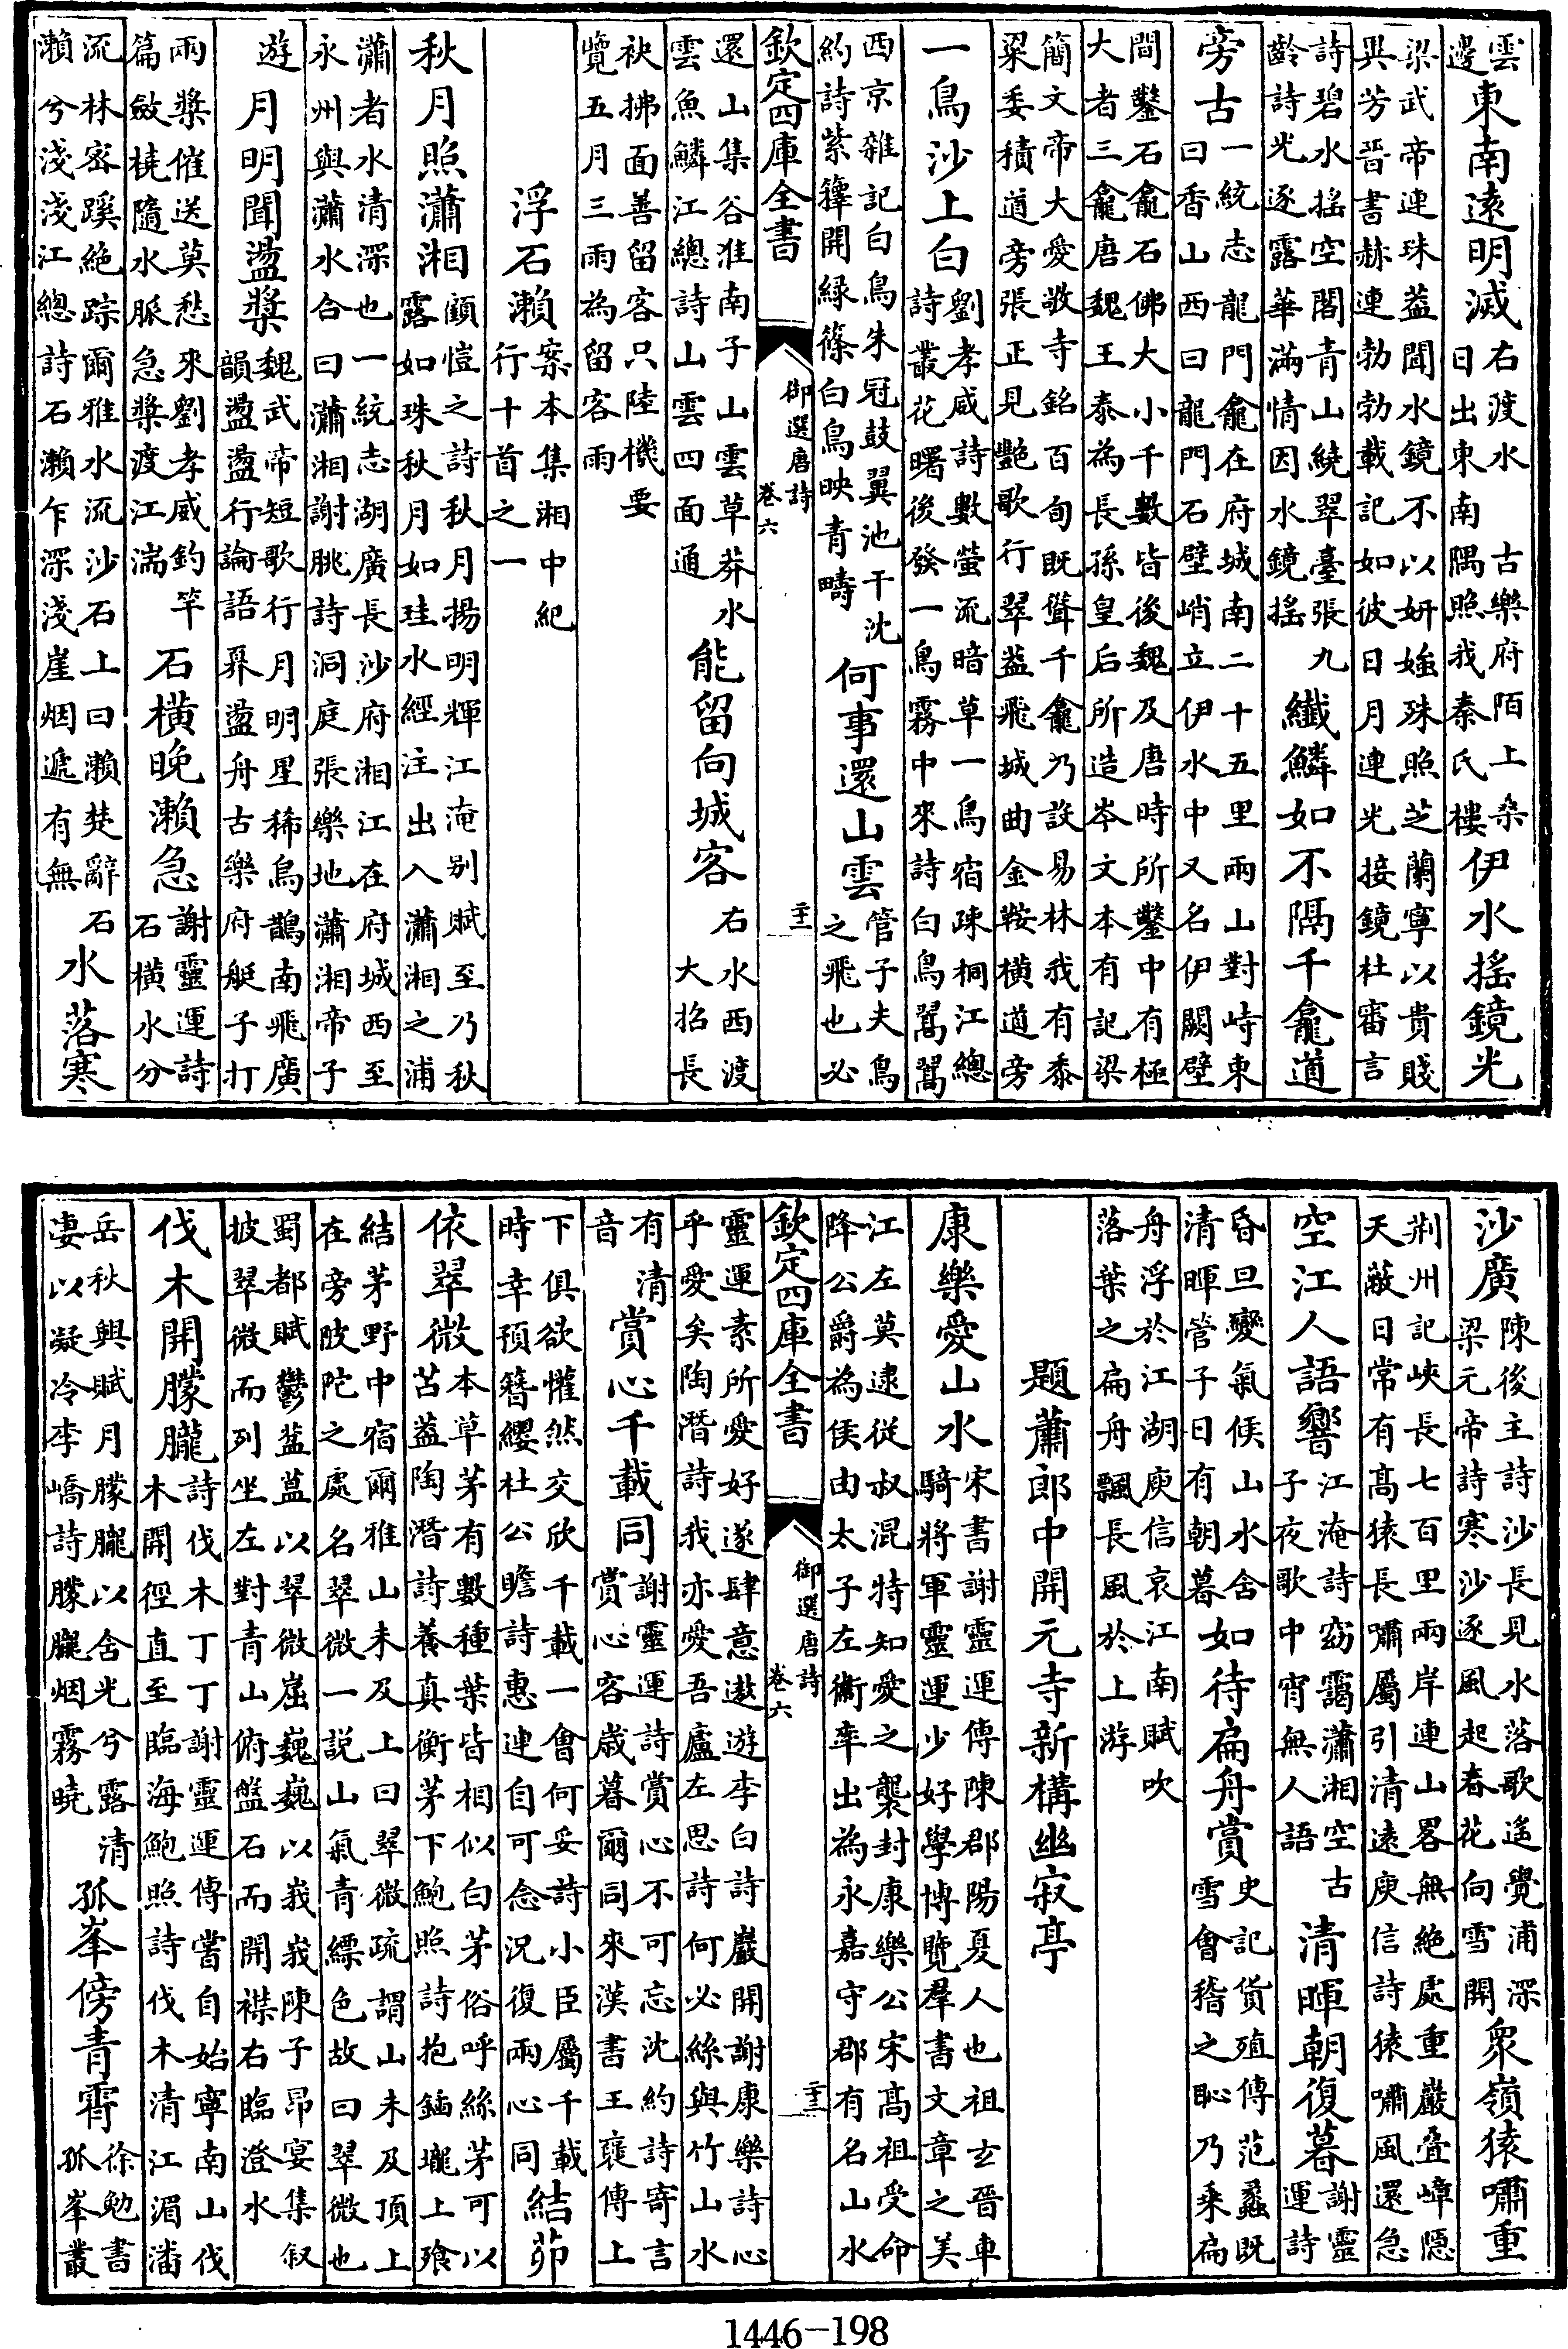 雲邊東南遠明滅右渡水　古樂府陌上桑
日出東南隅照我秦氏樓伊水搖鏡光
梁武帝連珠葢聞水鏡不以妍媸殊照芝蘭寧以貴賤
異芳晉書赫連勃勃載記如彼日月連光接鏡杜審言
詩碧水搖空閣青山繞翠臺張九
齡詩光逐露華滿情因水鏡搖纎鱗如不隔千龕道
旁古一統志龍門龕在府城南二十五里兩山對峙東
曰香山西曰龍門石壁峭立伊水中又名伊闕壁
間鑿石龕石佛大小千數皆後魏及唐時所鑿中有極
大者三龕唐魏王泰為長孫皇后所造岑文本有記梁
簡文帝大愛敬寺銘百旬既聳千龕乃設易林我有黍
粱委積道旁張正見艷歌行翠葢飛城曲金鞍橫道旁
一鳥沙上白劉孝威詩數螢流暗草一鳥宿疎桐江總
詩叢花曙後發一鳥霧中來詩白鳥翯翯
西京雜記白鳥朱冠鼓翼池干沈
約詩紫籜開緑篠白鳥映青疇何事還山雲管子夫鳥
之飛也必
欽定四庫全書　御選唐詩　卷六
還山集谷淮南子山雲草莽水
雲魚鱗江總詩山雲四面通能留向城客右水西渡
大招長
袂拂面善留客只陸機要
覽五月三雨為留客雨
浮石瀨案本集湘中紀
行十首之一
秋月照瀟湘顧愷之詩秋月揚明輝江淹别賦至乃秋
露如珠秋月如珪水經注出入瀟湘之浦
瀟者水清深也一統志湖廣長沙府湘江在府城西至
永州與瀟水合曰瀟湘謝朓詩洞庭張樂地瀟湘帝子
遊月明聞盪槳魏武帝短歌行月明星稀烏鵲南飛廣
韻盪盪行論語奡盪舟古樂府艇子打
兩槳催送莫愁來劉孝威釣竿
篇斂橈隨水脈急槳渡江湍石橫晚瀨急謝靈運詩
石橫水分
流林密蹊絶踪爾雅水流沙石上曰瀨楚辭石
瀨兮淺淺江總詩石瀨乍深淺崖烟遞有無水落寒
沙廣陳後主詩沙長見水落歌遙覺浦深
梁元帝詩寒沙逐風起春花向雪開衆嶺猿嘯重
荆州記峽長七百里兩岸連山畧無絶處重巖疊嶂隱
天蔽日常有髙猿長嘯屬引清遠庾信詩猿嘯風還急
空江人語響江淹詩窈靄瀟湘空古
子夜歌中宵無人語清暉朝復暮謝靈
運詩
昏旦變氣候山水含
清暉管子日有朝暮如待扁舟賞史記貨殖傳范蠡既
雪會稽之恥乃乘扁
舟浮於江湖庾信哀江南賦吹
落葉之扁舟飄長風於上游
題蕭郎中開元寺新構幽寂亭
康樂愛山水宋書謝靈運傳陳郡陽夏人也祖玄晉車
騎將軍靈運少好學博覽羣書文章之美
江左莫逮從叔混特知愛之襲封康樂公宋髙祖受命
降公爵為侯由太子左衞率出為永嘉守郡有名山水
欽定四庫全書　御選唐詩　卷六
靈運素所愛好遂肆意遨遊李白詩巖開謝康樂詩心
乎愛矣陶潛詩我亦愛吾廬左思詩何必絲與竹山水
有清
音賞心千載同謝靈運詩賞心不可忘沈約詩寄言
賞心客歲暮爾同來漢書王襃傳上
下俱欲懽然交欣千載一會何妥詩小臣屬千載
時幸預簪纓杜公瞻詩惠連自可念況復兩心同結茆
依翠微本草茅有數種葉皆相似白茅俗呼絲茅可以
苫葢陶潛詩養真衡茅下鮑照詩抱鍤壠上飱
結茅野中宿爾雅山未及上曰翠微疏謂山未及頂上
在旁陂陀之處名翠微一説山氣青縹色故曰翠微也
蜀都賦鬱葐蒀以翠微崫巍巍以峩峩陳子昻宴集叙
披翠微而列坐左對青山俯盤石而開襟右臨澄水
伐木開朦朧詩伐木丁丁謝靈運傳嘗自始寧南山伐
木開徑直至臨海鮑照詩伐木清江湄潘
岳秋興賦月朦朧以含光兮露清
凄以凝冷李嶠詩朦朧烟霧曉孤峯傍青霄徐勉書
孤峯叢
1446-198